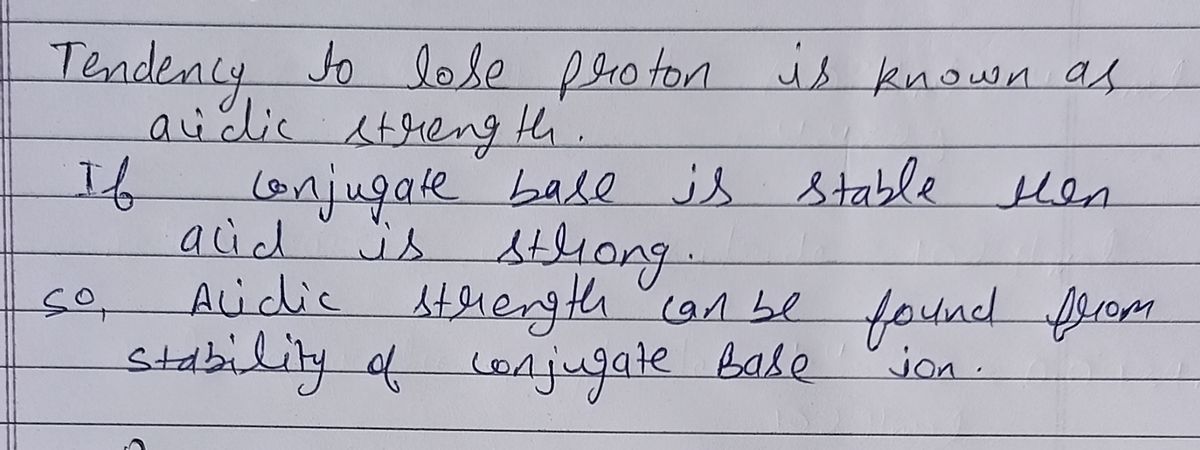 Tendency to lose proton is known as
acidic strength.
If conjugate base is stable then
acid is strong.
so, Acidic strength can be found from
stability of conjugate Base ion.